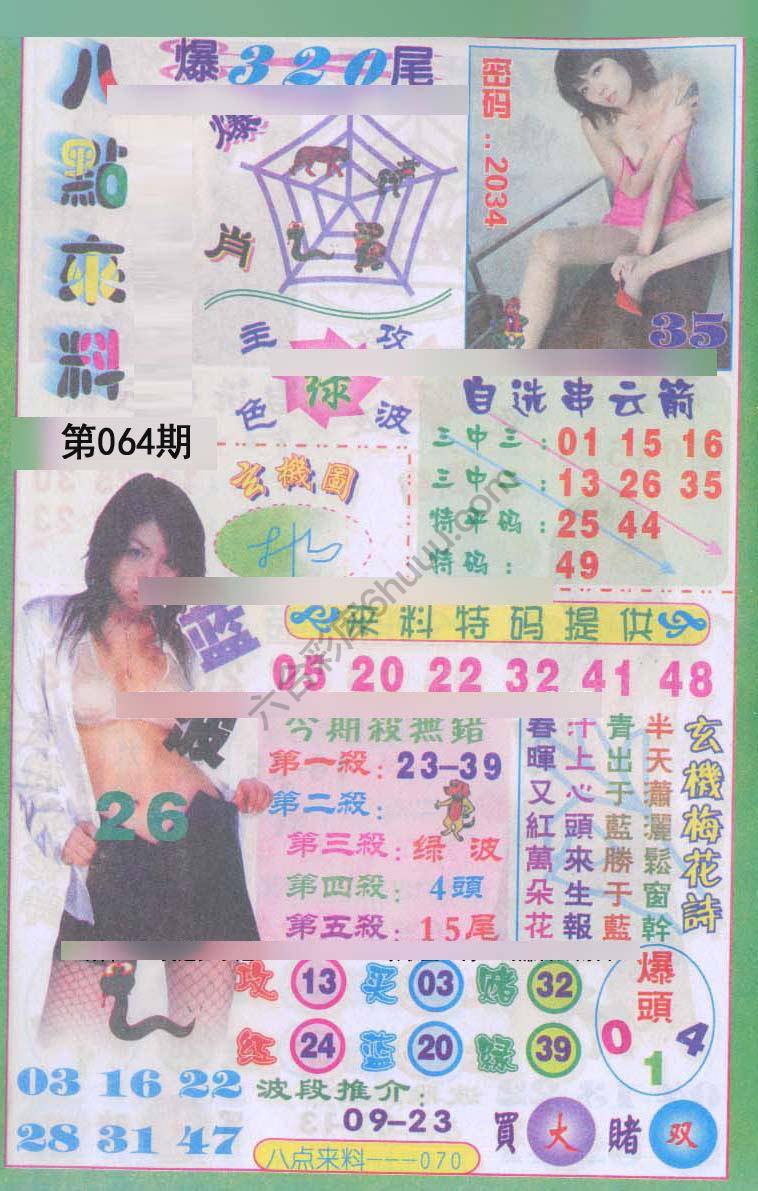 八點來料
爆320尾
爆肖
密码..2034
35
主攻
绿
色波
第064期
自选串云箭
三中三:01 15 16
三中二:13 26 35
特平码:25 44
特码:49
玄機圖
六合彩库6huuu.com
蓝波
26
來料特码提供
05 20 22 32 41 48
今期殺無錯
第一殺:23-39
第二殺:
第三殺:绿波
第四殺:4頭
第五殺:15尾
玄機梅花詩
半天蕭灑鬆窗幹
青出于藍勝于藍
汁上心頭來生報
春暉又紅萬朵花
攻 13 买 03 赌 32
红 24 蓝 20 緑 39
爆頭
0 1 4
03 16 22
28 31 47
波段推介:
09-23
買大賭双
八点来料---070